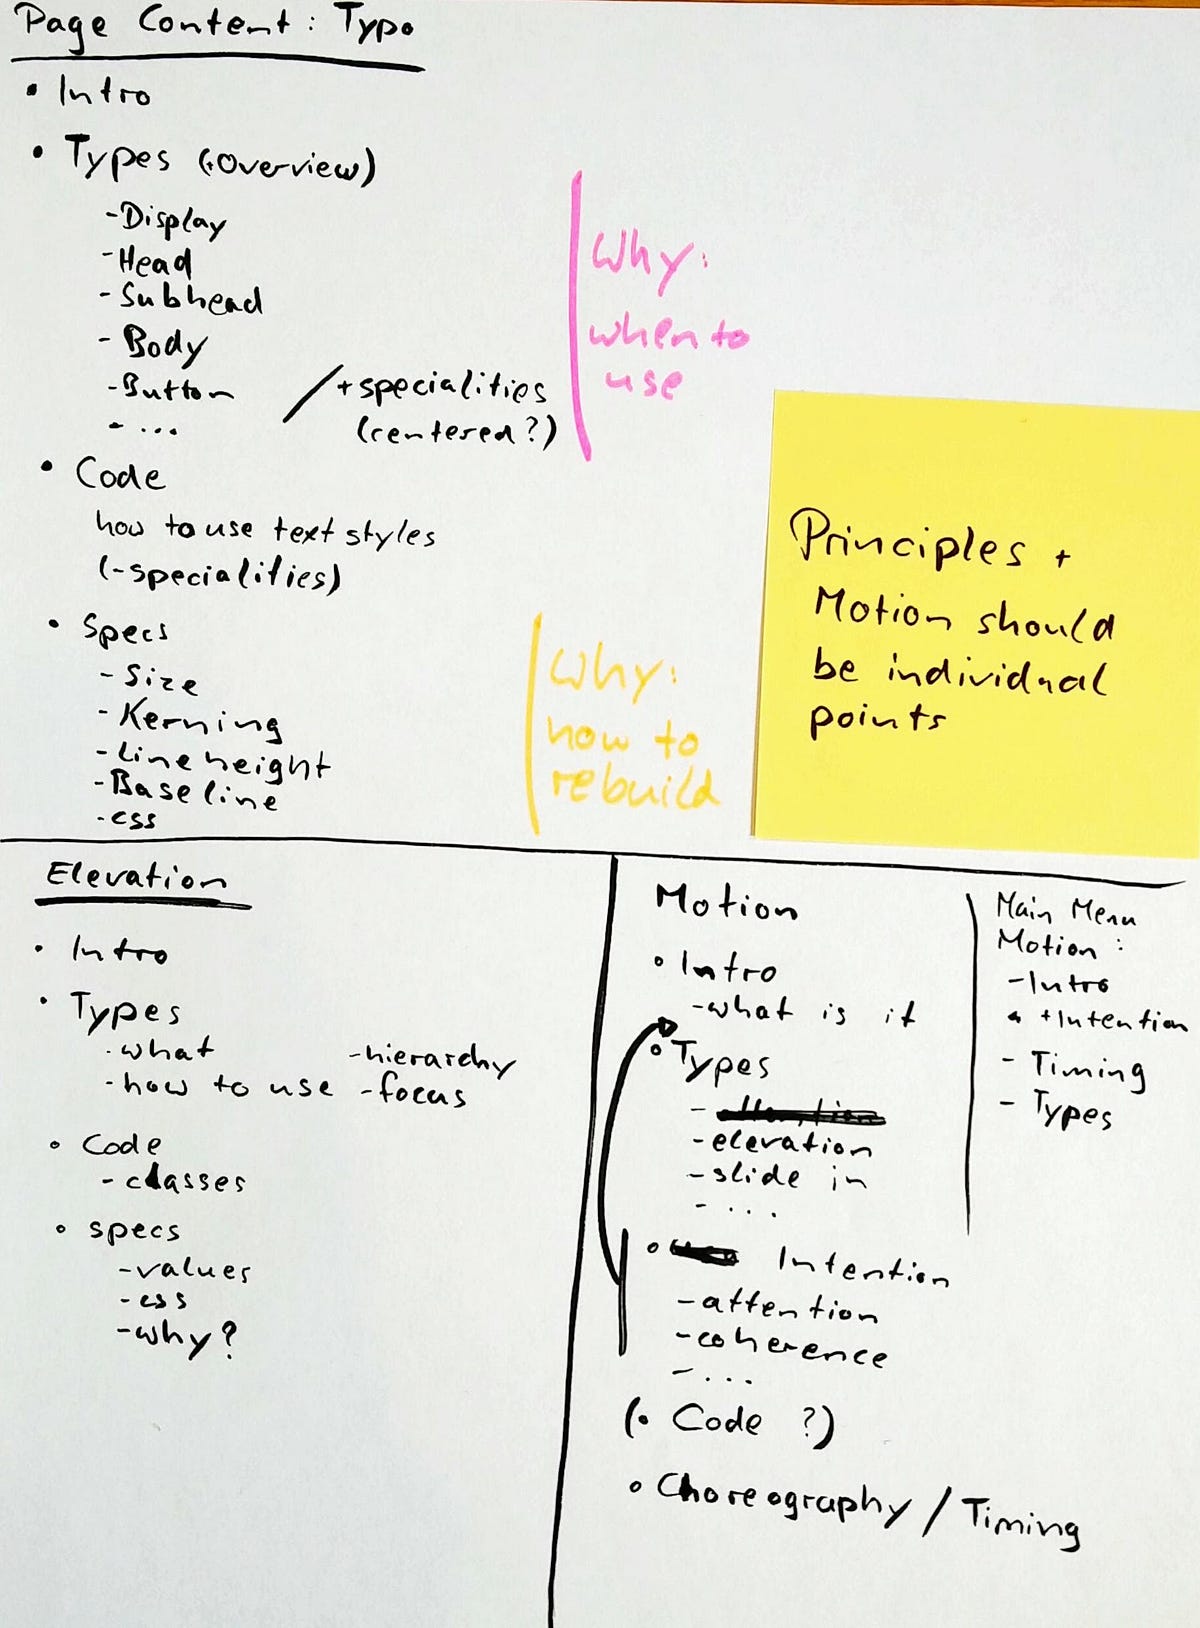 Page Content: Typo
• Intro
• Types (+Overview)
- Display
- Head
- Subhead
- Body
- Button
- ...
/ + specialities
(centered?)
Why:
when to
use
• Code
how to use text styles
(-specialities)
• Specs
- Size
- Kerning
- Line height
- Baseline
- css
Why:
how to
rebuild
Principles +
Motion should
be individual
points
Elevation
• Intro
• Types
- what
- how to use
- hierarchy
- focus
• Code
- classes
• specs
- values
- css
- why?
Motion
• Intro
- what is it
• Types
-
- elevation
- slide in
- ...
• Intention
- attention
- coherence
- ...
(• Code ?)
• Choreography / Timing
Main Menu
Motion:
- Intro
• + Intention
- Timing
- Types